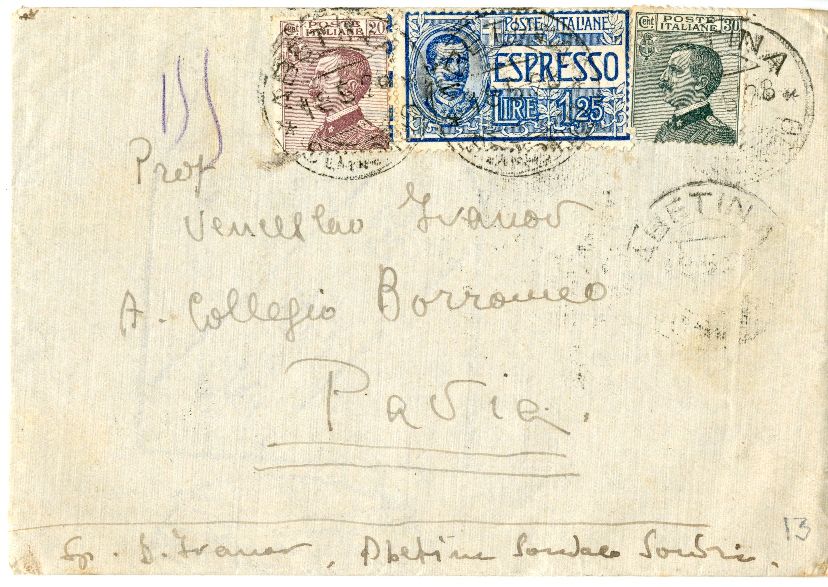 Cent POSTE ITALIANE 20
POSTE ITALIANE
ESPRESSO
LIRE 1,25
Cent POSTE ITALIANE 30
Prof
Venceslao Ivanov
A. Collegio Borromeo
Pavia.
ABETINA
Sp. D. Ivanov, Abetina Sondalo Sondrio
13